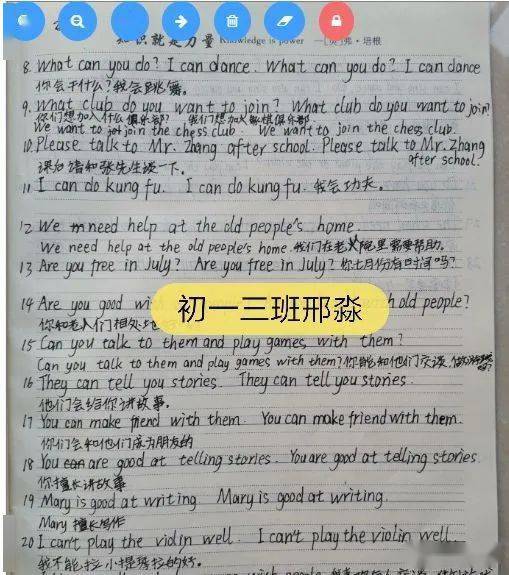 知识就是力量 Knowledge is power —[英]弗·培根
8. What can you do? I can dance. What can you do? I can dance
你会干什么?我会跳舞。
9. What club do you want to join? What club do you want to join?
你们想加入什么俱乐部? 我们想加入象棋俱乐部.
We want to join the chess club. We want to join the chess club.
10. Please talk to Mr. Zhang after school. Please talk to Mr. Zhang
after school.
课后请和张先生谈一下。
11 I can do kung fu. I can do kung fu. 我会功夫。
12 We need help at the old people's home.
We need help at the old people's home. 我们在老人院里需要帮助。
13 Are you free in July? Are you free in July? 你七月份有时间吗?
14 Are you good wi h old people?
初一三班邢淼
你和老人们相处
15 Can you talk to them and play games with them?
Can you talk to them and play games with them? 你能和他们交谈,做游戏吗?
16 They can tell you stories. They can tell you stories.
他们会给你讲故事。
17 You can make friend with them. You can make friend with them.
你们会和他们成为朋友的
18 You are good at telling stories. You are good at telling stories.
你擅长讲故事
19 Mary is good at writing Mary is good at writing.
Mary 擅长写作
20 I can't play the violin well. I can't play the violin well.
我不能拉小提琴拉的好。
with people